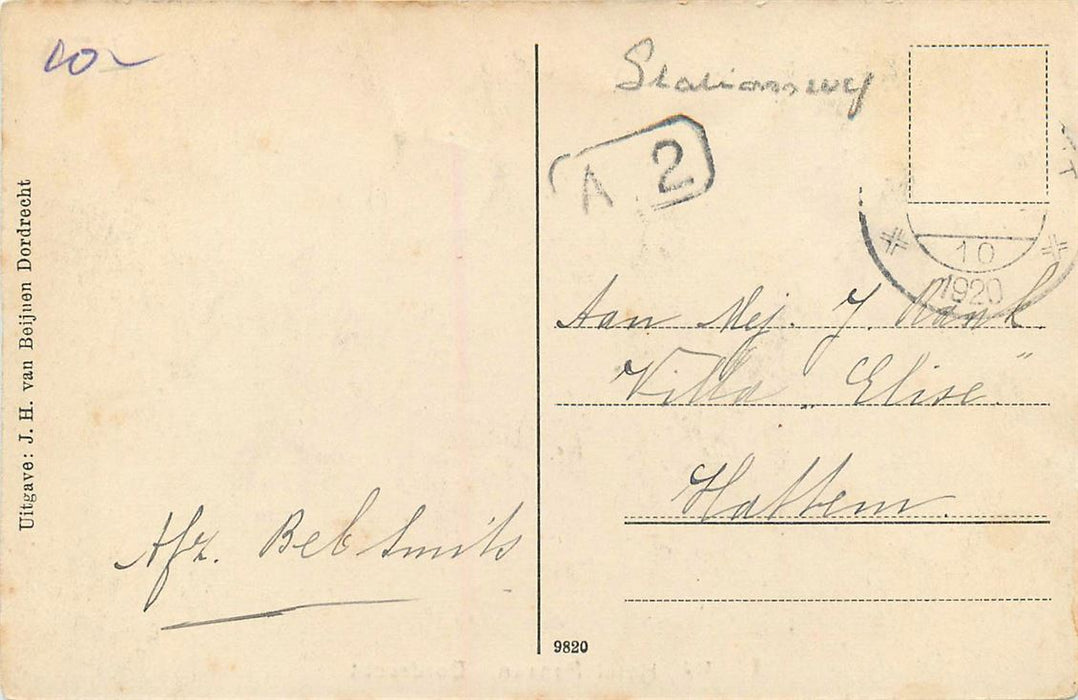 10 ~
Uitgave: J. H. van Beijnen Dordrecht
Afz. Beb Smits
Stationsweg
A 2
10
1920
Aan Mej. J. Rank.
Villa „Elise."
Hattem.
9820